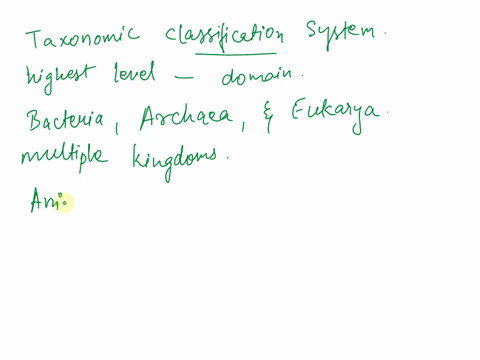 Taxonomic classification System.
highest level – domain.
Bacteria, Archaea, & Eukarya.
multiple kingdoms.
Ani